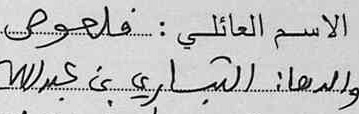 الاسم العائلي : فلعوص
والدها: التباري بن عبدالله